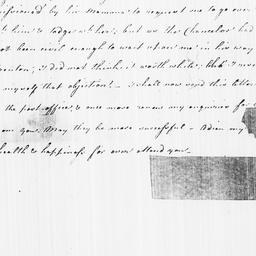 by his Mamma to request me to go over
him & lodge at her's, but as the Chancelor had
not been civil enough to wait upon me in her way
I did not think it worth while;
myself that objection. – I shall now send this letter
the post office, & once more renew my enquiries for
one you. May they be more successful – Adieu my
health & happiness for ever attend you.